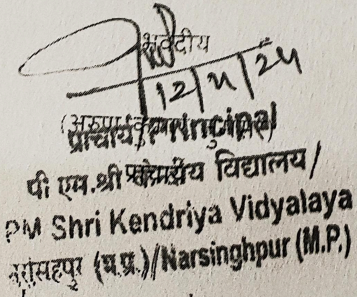 भवदीय
12/11/24
प्राचार्य/Principal
पी एम.श्री केन्द्रीय विद्यालय/
PM Shri Kendriya Vidyalaya
नरसिंहपुर (म.प्र.)/Narsinghpur (M.P.)